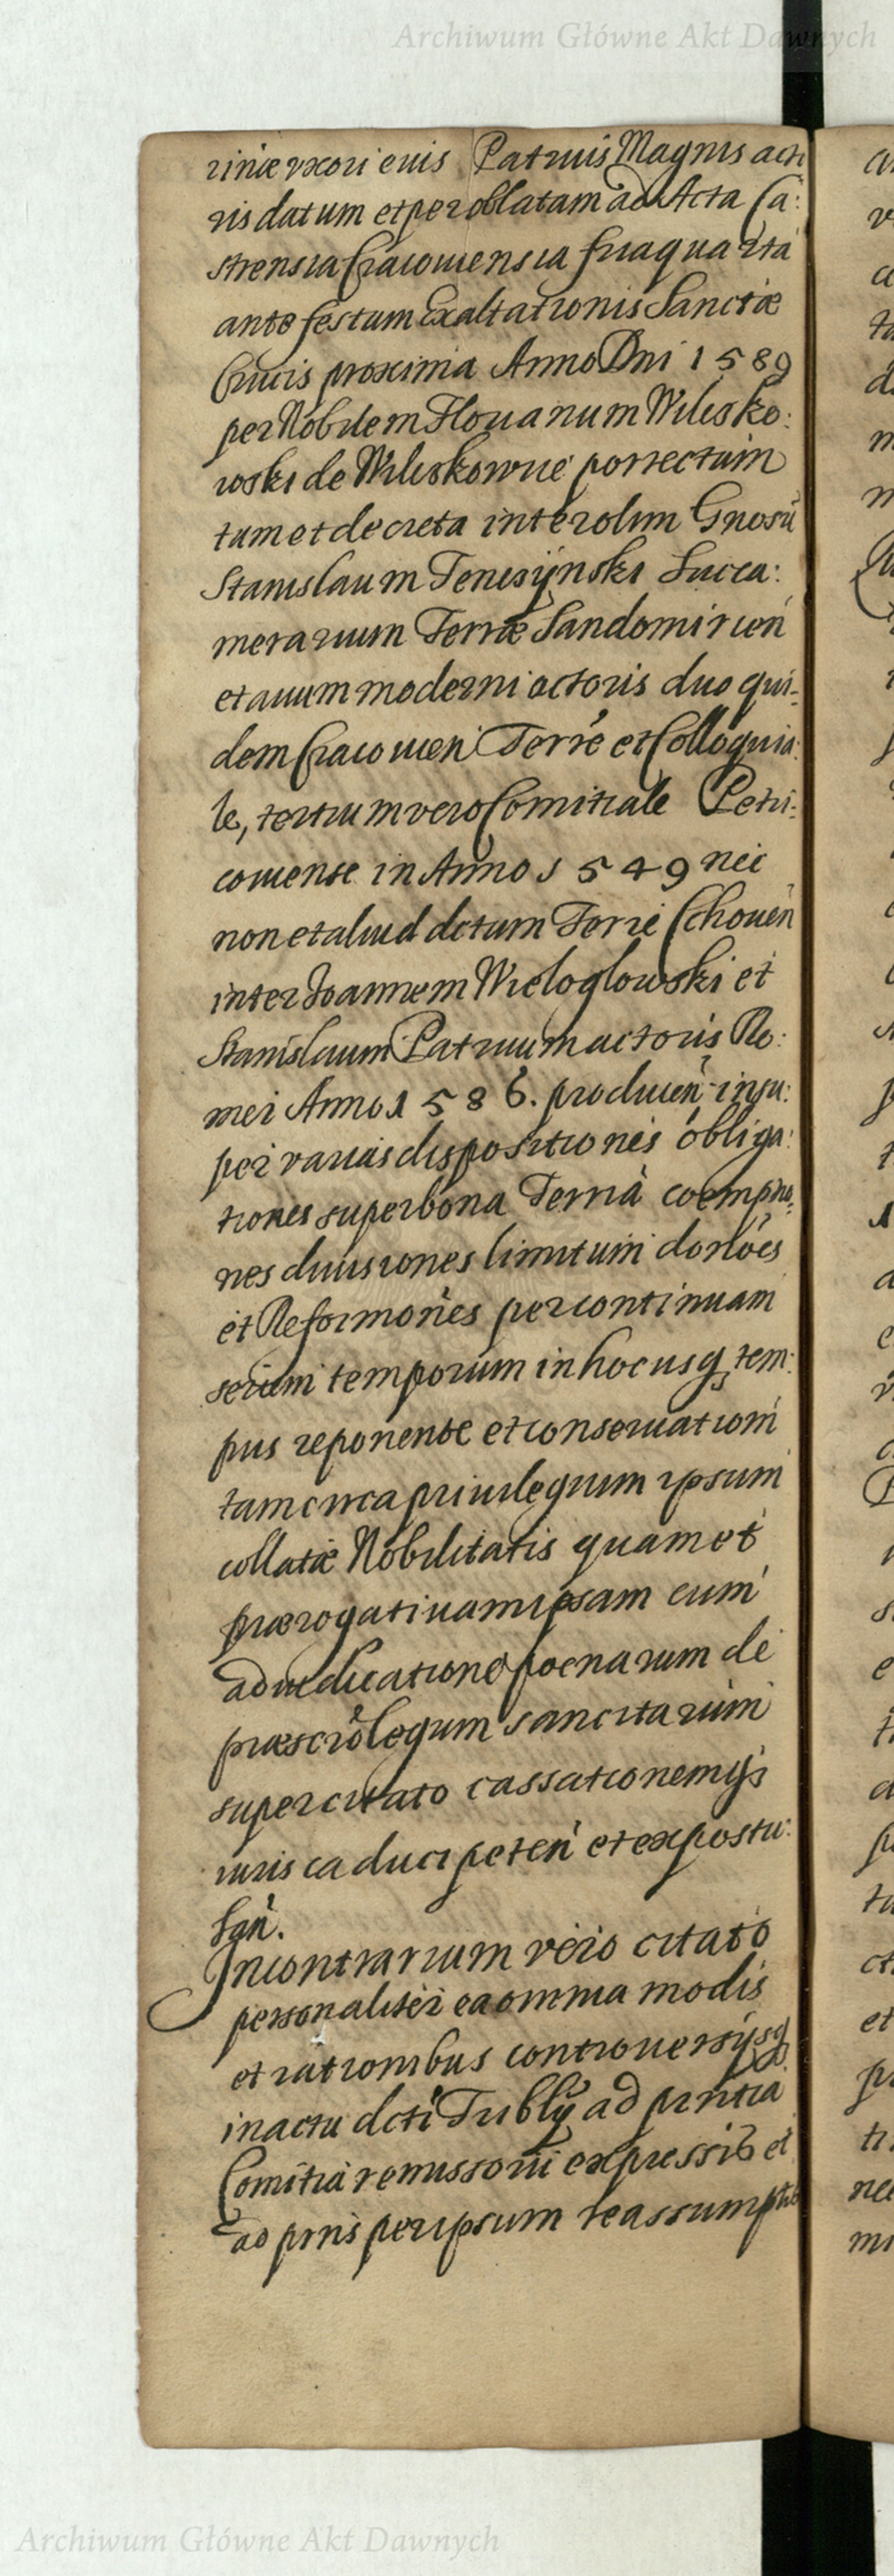 Archiwum Główne Akt Dawnych
rinæ uxori euis Patruis Magnis acto
ris datum et per oblatam ad Acta Ca:
strensia Cracouiensia fria quarta
ante festum Exaltationis Sanctæ
Crucis proxima Anno Dni 1589
per Nobilem Florianum Wilisko:
wski de Wiliskowice porrectum
tum et decreta inter olim Gnosū
Stanislaum Tenczÿnski Succa:
merarium Terræ Sandomirien
et auum moderni actoris duo qui-
dem Cracouien Terre et Colloquia:
le, tertium vero Comitiale Petri:
couiense in Anno 1549 nec
non et aliud dctum Terre Cchouien
inter Joannem Wieloglowski et
Stanislaum Patruum actoris Ro:
mei Anno 1586. producen insu:
per varias dispositiones obliga:
tiones super bona Terria coemptio:
nes diuisiones limitum donoes
et Reformones per continuam
seriem temporum in hoc usq tem:
pus reponente et conseruationi
tam circa priuilegium ipsum
collatæ Nobilitatis quam et
prærogatiuam ipsam cum
adiudicatione poenarum de
præscro legum sancitarum
super citato cassationemqs
iuris caduci peten et expostu:
lan.
In contrarium vero citato
personaliter ea omnia modis
et rationibus controuersÿsq
in actu dcti Triblÿ ad prntia
Comitia remissorii expressis et
ad prns per ipsum reassumptis
Archiwum Główne Akt Dawnych